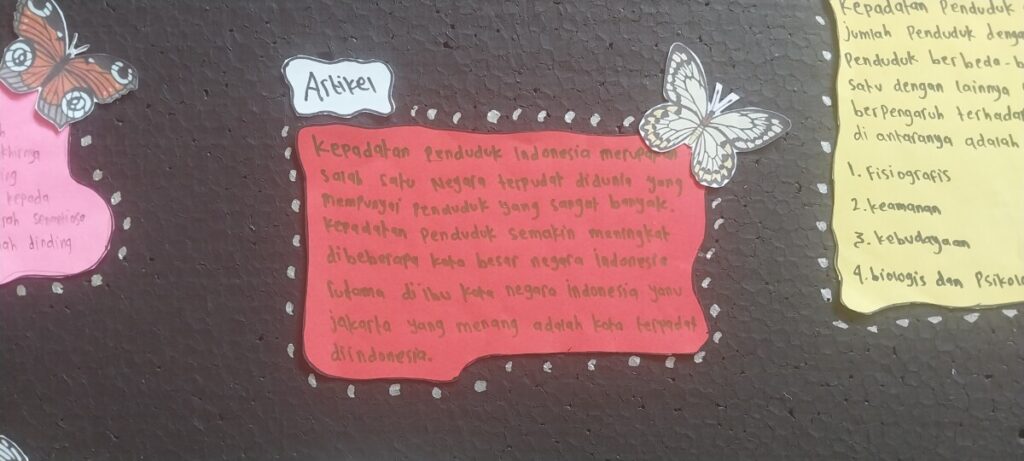 khirnya
kepada
dinding
Artikel
Kepadatan Penduduk Indonesia merupakan
salah satu Negara terpudat didunia yang
mempunyai Penduduk yang sangat banyak.
Kepadatan Penduduk semakin meningkat
dibeberapa kota besar negara indonesia
di ibu kota negara indonesia yanu
jakarta yang menang adalah kota terpadat
diindonesia.
Kepadatan Penduduk
jumlah Penduduk denga
Penduduk berbeda-b
satu dengan lainnya
berpengaruh terhada
di antaranya adalah
1. Fisiografis
2. keamanan
3. kebudayaan
4. biologis dan Psikolo